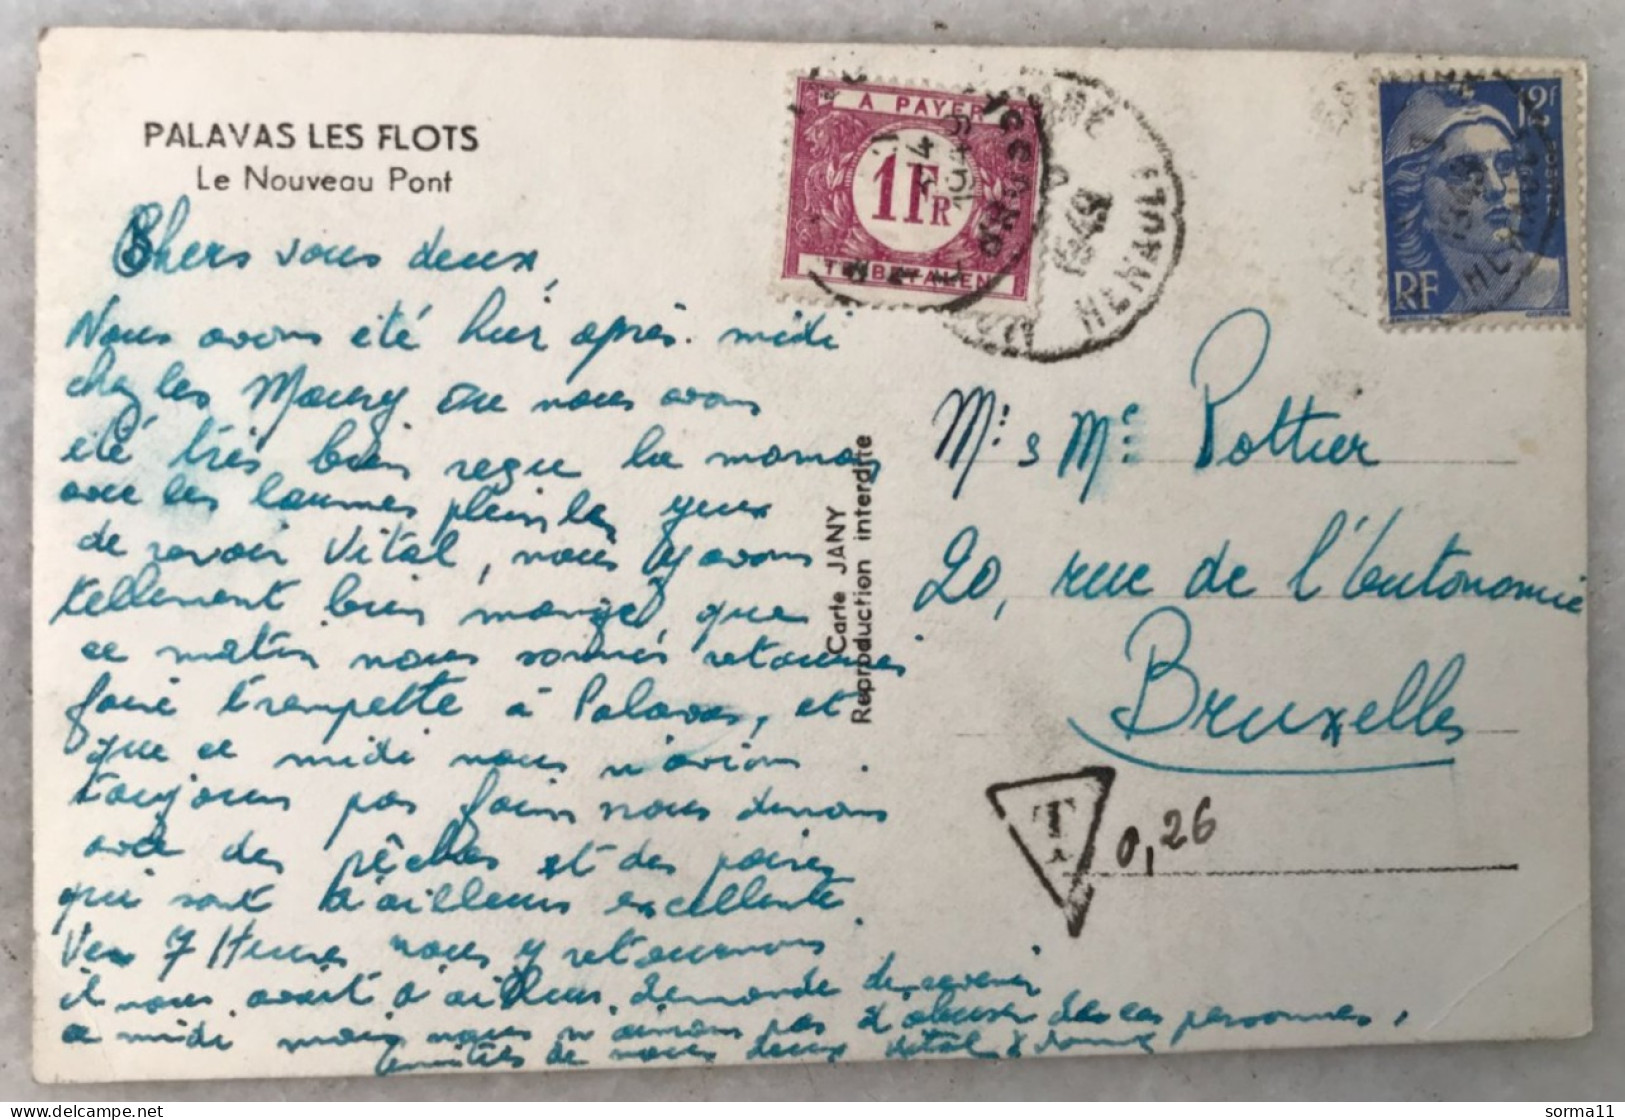 PALAVAS LES FLOTS
Le Nouveau Pont
Chers vous deux,
Nous avons été hier après-midi
chez les Moury ou nous avons
été très bien reçu la maman
avec les larmes plein les yeux
de revoir Vital, nous y avons
tellement bien mangé, que
ce matin nous sommes retournés
faire trempette à Palavas, et
que ce midi nous n'avions
toujours pas faim nous dinons
avec des pêches et des poires
qui sont d'ailleurs excellente.
Vers 7 Heures nous y retournons
il nous avait d'ailleurs demandé de revenir
ce midi mais nous n'aimons pas d'abuser de ces personnes,
Amitiés de nous deux Vital &
Carte JANY
Reproduction interdite
A PAYER
1 FR
TE BETALEN
12f
RF
HERAULT
1949
Mr & Me Pottier
20, rue de l'autonomie
Bruxelles
T
0,26
delcampe.net
sorma11